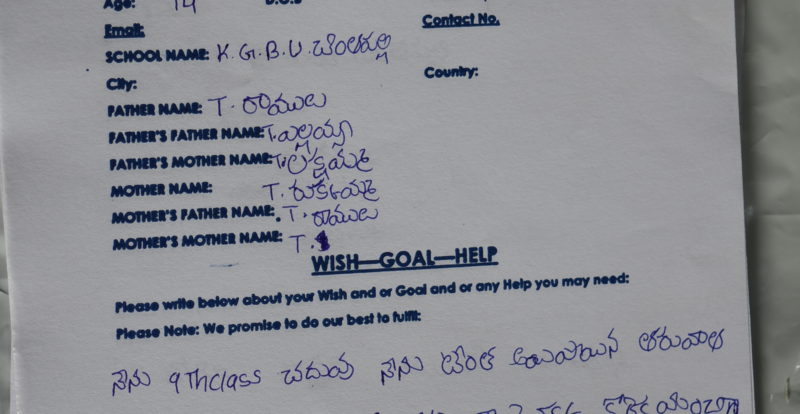 Age: 14 D.O.B
Email: Contact No.
SCHOOL NAME: K.G.B.V.
City: Country:
FATHER NAME: T. రాములు
FATHER'S FATHER NAME: T. ఎల్లయ్యా
FATHER'S MOTHER NAME: T. లక్ష్మమ్మ
MOTHER NAME: T. రుకమ్మ
MOTHER'S FATHER NAME: T. రాములు
MOTHER'S MOTHER NAME: T.
WISH—GOAL—HELP
Please write below about your Wish and or Goal and or any Help you may need:
Please Note: We promise to do our best to fulfil:
నేను 9Thclass చదువు నేను టెంత్ అయిపోయిన తరువాత